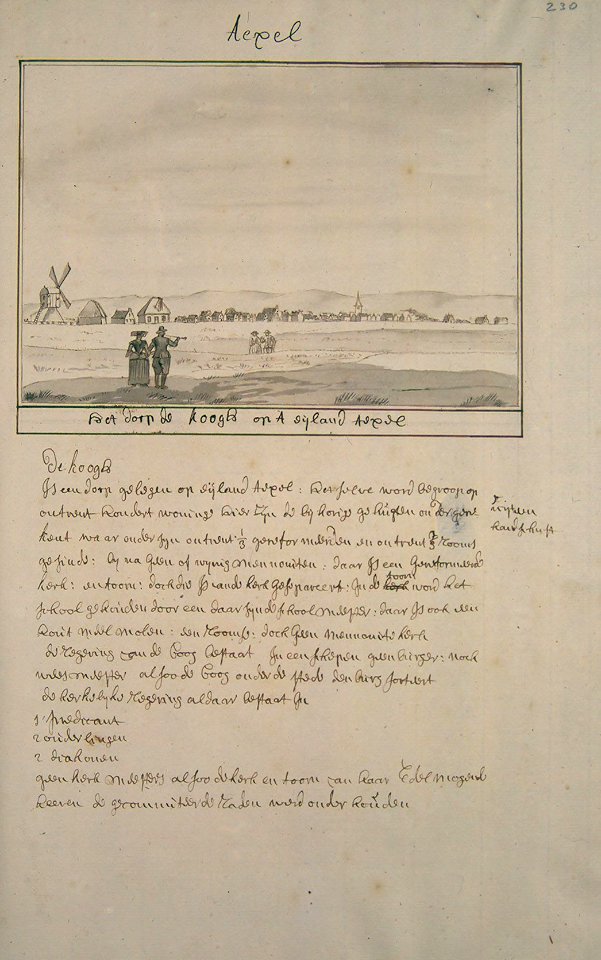 230
Texel
Het dorp de koogh op t eijland texel
De koogh
Is een dorp gelegen op eijland texel: het selve word begroop op
ontrent hondert woninge hier zijn de bij horige gehugten onder gere
kent waar onder sijn ontrent 1/3 gereformeerden en ontrent 2/3 Rooms
gesinde: bij na geen of wijnig mennoniten: daar Is een Gereformeerde
kerk: en toorn: doch die Is vande kerk Gesepareert: In de toorn word het
school gehouden door een daar zijnde schoolmeester: daar Is ook een
kout meel molen: een Roomse: doch Geen mennonite kerk
de Regering van de Coog bestaat In een schepen geen burger: noch
weesmeester alsoo de Coog onder de stede den burg sorteert
de kerkelijke Regering aldaar bestaat In
1 predicant
2 ouderlingen
2 diakonen
geen kerk meesters alsoo de kerk en toorn van haar Edel mogende
heeren de gecommiteerde Raden werd onder houden